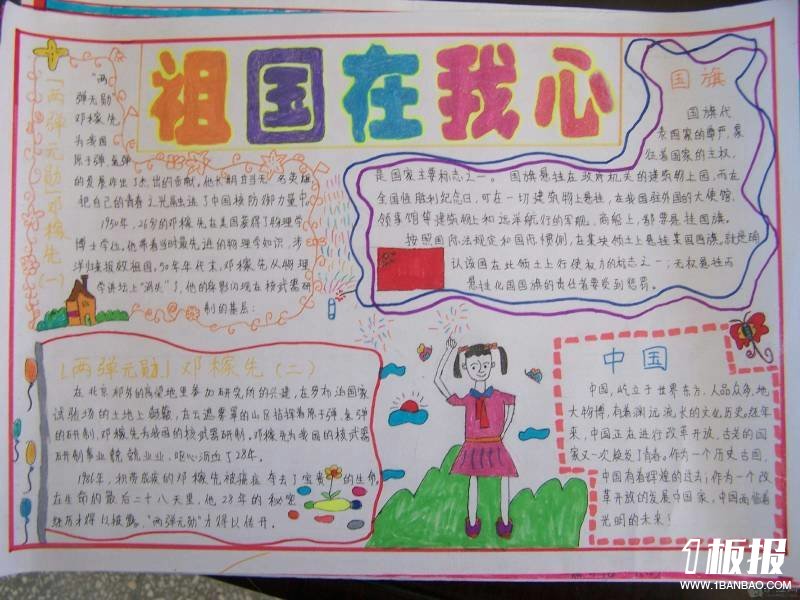 祖国在我心
「两弹元勋」邓稼先(一)
"两
弹元勋"
邓稼先
为我国
原子弹、氢弹
的发展作出了杰出的贡献。他长期甘当无名英雄,
把自己的青春之光献进了中国核防御力量中。
1950年,26岁的邓稼先在美国获得了物理学
博士学位,他带着当时最先进的物理学知识,涉
洋归来报效祖国。50年代末,邓稼先从物理
学讲坛上"消失"了,他的身影闪现在核武器研
制的基层:
国旗
国旗代
表国家的尊严,象
征着国家的主权,
是国家主要标志之一。国旗悬挂在政府机关的建筑物上园,而在
全国性胜利纪念日,可在一切建筑物上悬挂,在我国驻外国的大使馆,
领事馆等建筑物上和远洋航行的军舰,商船上,都要悬挂国旗。
按照国际法规定和国府惯例,在某块领土上悬挂某国国旗,就是确
认该国在此领土上行使权力的标志之一;无权悬挂而
悬挂他国国旗的责任者要受到惩罚。
「两弹元勋」邓稼先(二)
在北京郊外的高粱地里参加研究所的兴建,在罗布泊国家
试验场的土地上颠簸,在云遮雾罩的山区指挥着原子弹、氢弹
的研制,邓稼先为我国的核武器研制。邓稼先为我国的核武器
研制事业兢兢业业,呕心沥血了28年。
1986年,积劳成疾的邓稼先被癌症夺去了宝贵的生命
在生命的最后二十八天里,他28年的秘密
经历才得以披露,"两弹元勋"才得以传开。
中国
中国,屹立于世界东方,人品众多,地
大物博,有着渊远流长的文化历史。近年
来,中国正在进行改革开放,古老的国
家又一次焕发了青春。作为一个历史古国,
中国有着辉煌的过去;作为一个改
革开放的发展中国家,中国面临着
光明的未来!
1板报
WWW.1BANBAO.COM